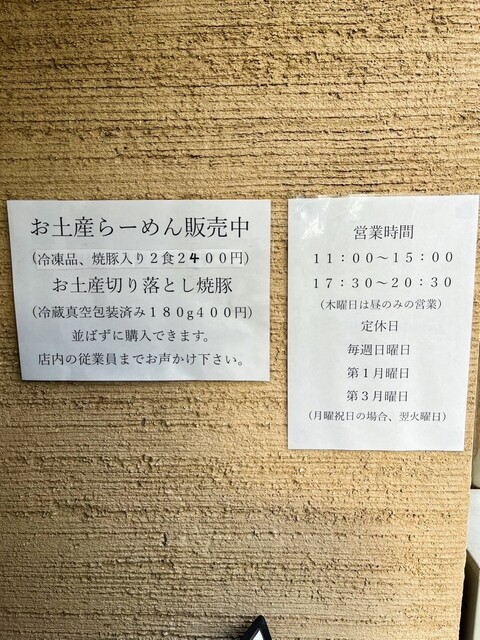 お土産らーめん販売中
(冷凍品、焼豚入り2食2400円)
お土産切り落とし焼豚
(冷蔵真空包装済み180g400円)
並ばずに購入できます。
店内の従業員までお声かけ下さい。
営業時間
11:00～15:00
17:30～20:30
(木曜日は昼のみの営業)
定休日
毎週日曜日
第1月曜日
第3月曜日
(月曜祝日の場合、翌火曜日)